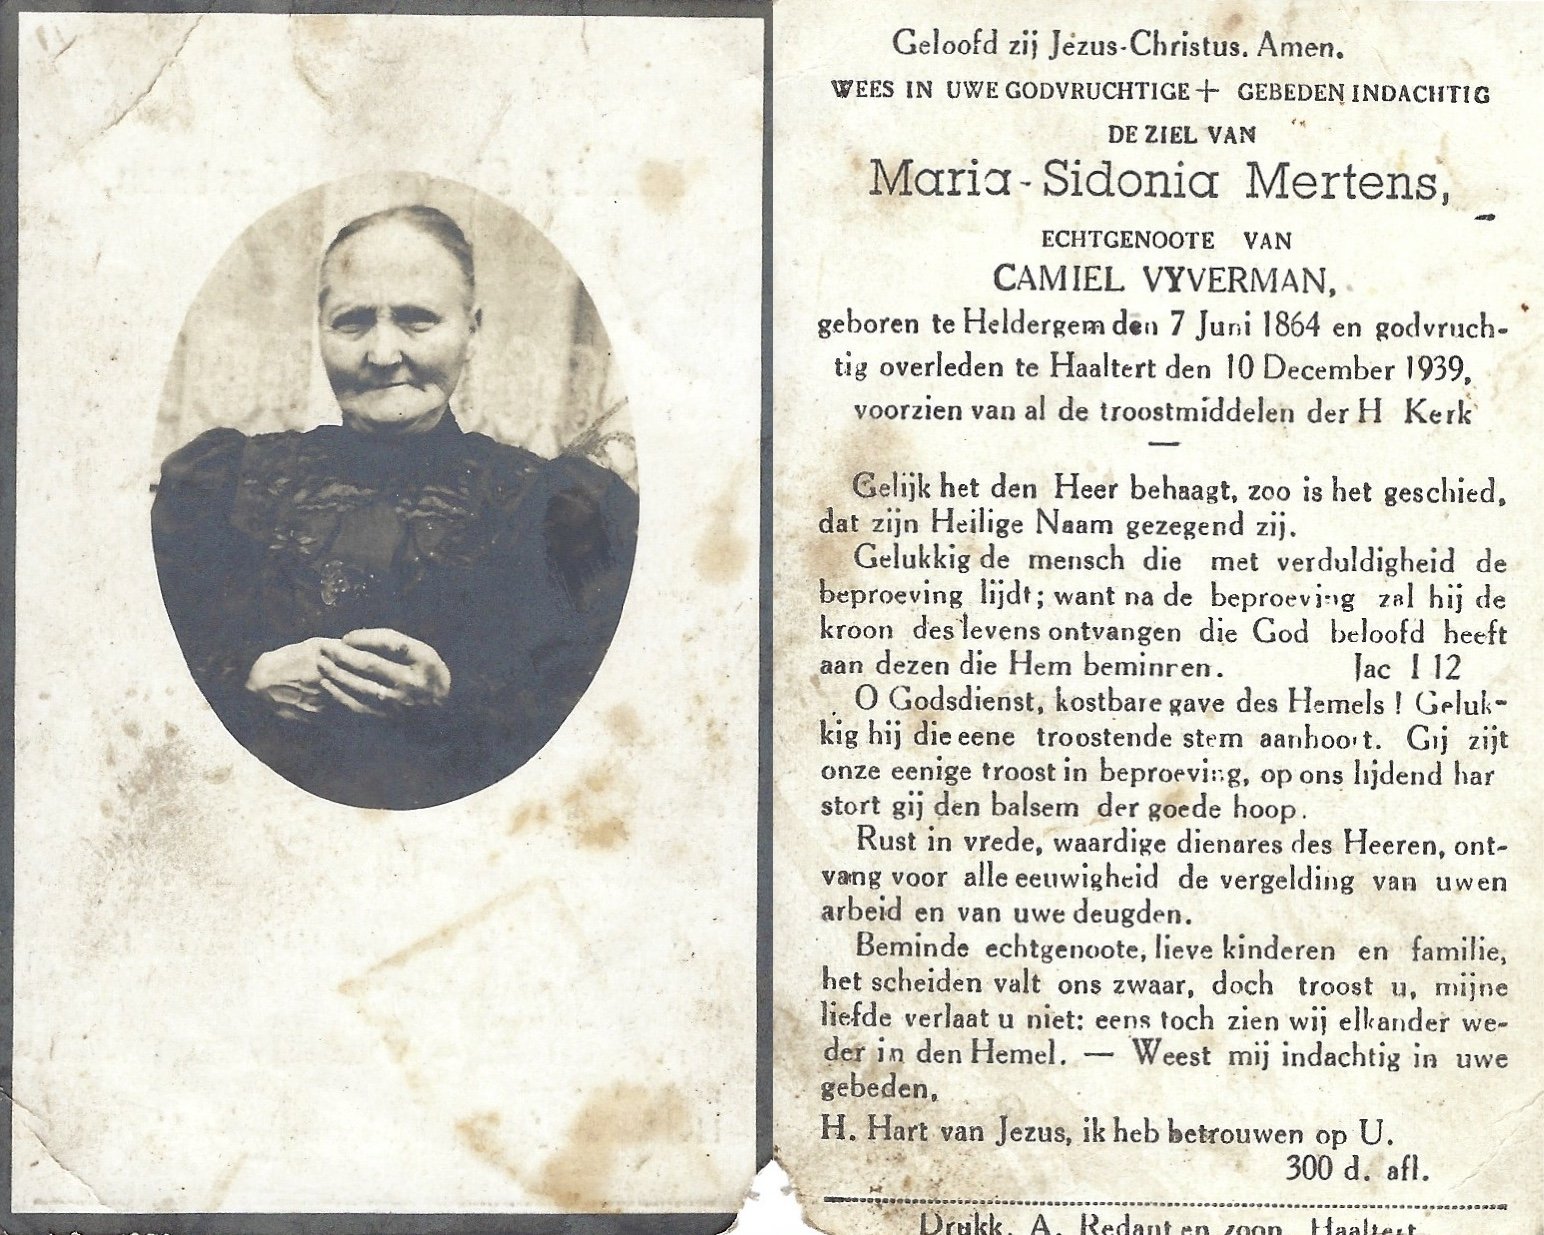 Geloofd zij Jezus-Christus. Amen.
WEES IN UWE GODVRUCHTIGE + GEBEDEN INDACHTIG
DE ZIEL VAN
Maria-Sidonia Mertens,
ECHTGENOOTE VAN
CAMIEL VYVERMAN,
geboren te Heldergem den 7 Juni 1864 en godvruch-
tig overleden te Haaltert den 10 December 1939,
voorzien van al de troostmiddelen der H Kerk
—
Gelijk het den Heer behaagt, zoo is het geschied,
dat zijn Heilige Naam gezegend zij.
Gelukkig de mensch die met verduldigheid de
beproeving lijdt; want na de beproeving zal hij de
kroon des levens ontvangen die God beloofd heeft
aan dezen die Hem beminren. Jac I 12
O Godsdienst, kostbare gave des Hemels ! Geluk-
kig hij die eene troostende stem aanhoort. Gij zijt
onze eenige troost in beproeving, op ons lijdend har
stort gij den balsem der goede hoop.
Rust in vrede, waardige dienares des Heeren, ont-
vang voor alle eeuwigheid de vergelding van uwen
arbeid en van uwe deugden.
Beminde echtgenoote, lieve kinderen en familie,
het scheiden valt ons zwaar, doch troost u, mijne
liefde verlaat u niet: eens toch zien wij elkander we-
der in den Hemel. — Weest mij indachtig in uwe
gebeden,
H. Hart van Jezus, ik heb betrouwen op U.
300 d. afl.
Drukk. A. Redant en zoon Haaltert